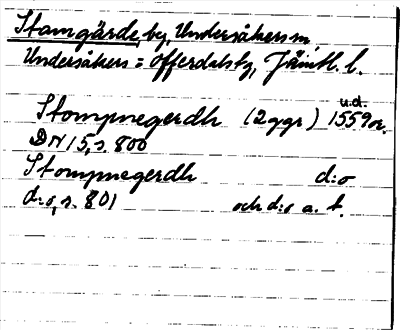 Stamgärde, by, Undersåkers sn,
Undersåkers o Offerdals tg, Jämtl. l.
u.d.
Stompnegerdh (2 ggr) 1559 or.
DN 15, s. 800
Stompnegerdh d:o
d:o, s. 801 och d:o a. st.